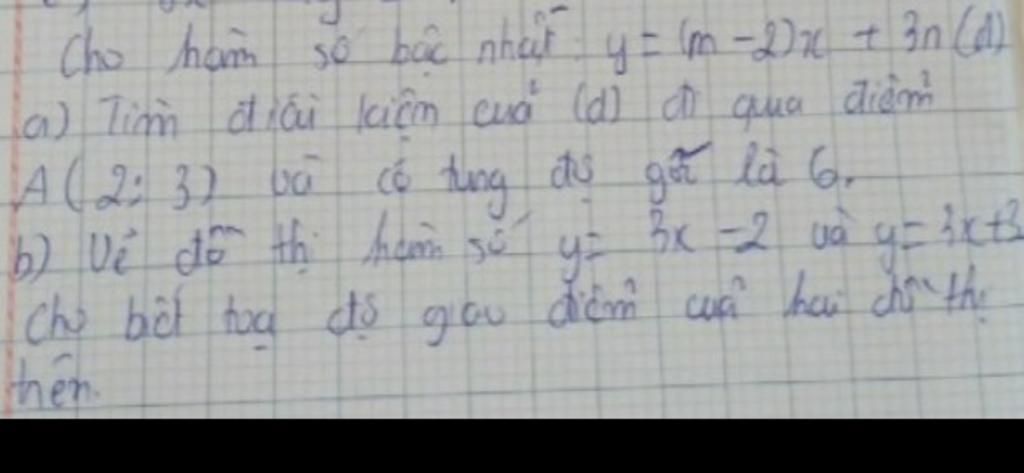 Cho hàm số bậc nhất y = (m - 2)x + 3n (d)
a) Tìm điều kiện của (d) đi qua điểm
A(2; 3) và có tung độ gốc là 6.
b) Vẽ đồ thị hàm số y = 3x - 2 và y = 3x + 3
cho biết toạ độ giao điểm của hai đồ thị
trên.